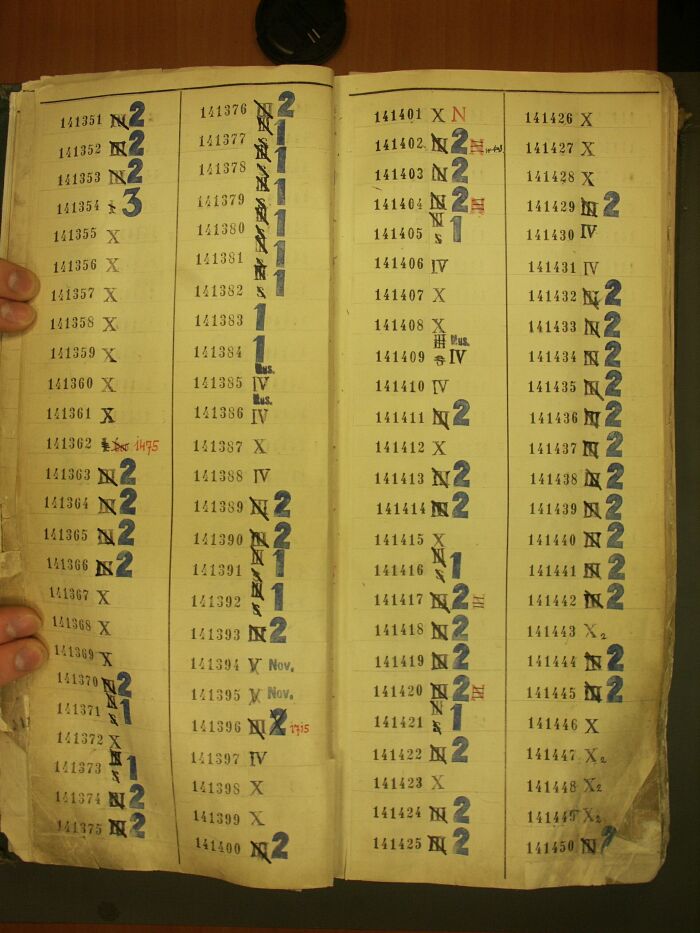 141351 2
141352 2
141353 2
141354 3
141355 X
141356 X
141357 X
141358 X
141359 X
141360 X
141361 X
141362 1475
141363 2
141364 2
141365 2
141366 2
141367 X
141368 X
141369 X
141370 2
141371 1
141372 X
141373 1
141374 2
141375 2
141376 2
141377 1
141378 1
141379 1
141380 1
141381 1
141382 1
141383 1
141384 1
Rus.
141385 IV
Rus.
141386 IV
141387 X
141388 IV
141389 2
141390 2
141391 1
141392 1
141393 2
141394 V Nov.
141395 V Nov.
141396 2 1715
141397 IV
141398 X
141399 X
141400 2
141401 X N
141402 2
141403 2
141404 2
141405 1
141406 IV
141407 X
141408 X
Rus.
141409 IV
141410 IV
141411 2
141412 X
141413 2
141414 2
141415 X
141416 1
141417 2 III
141418 2
141419 2
141420 2
141421 1
141422 2
141423 X
141424 2
141425 2
141426 X
141427 X
141428 X
141429 2
141430 IV
141431 IV
141432 2
141433 2
141434 2
141435 2
141436 2
141437 2
141438 2
141439 2
141440 2
141441 2
141442 2
141443 X2
141444 2
141445 2
141446 X
141447 X2
141448 X2
141449 X2
141450 2